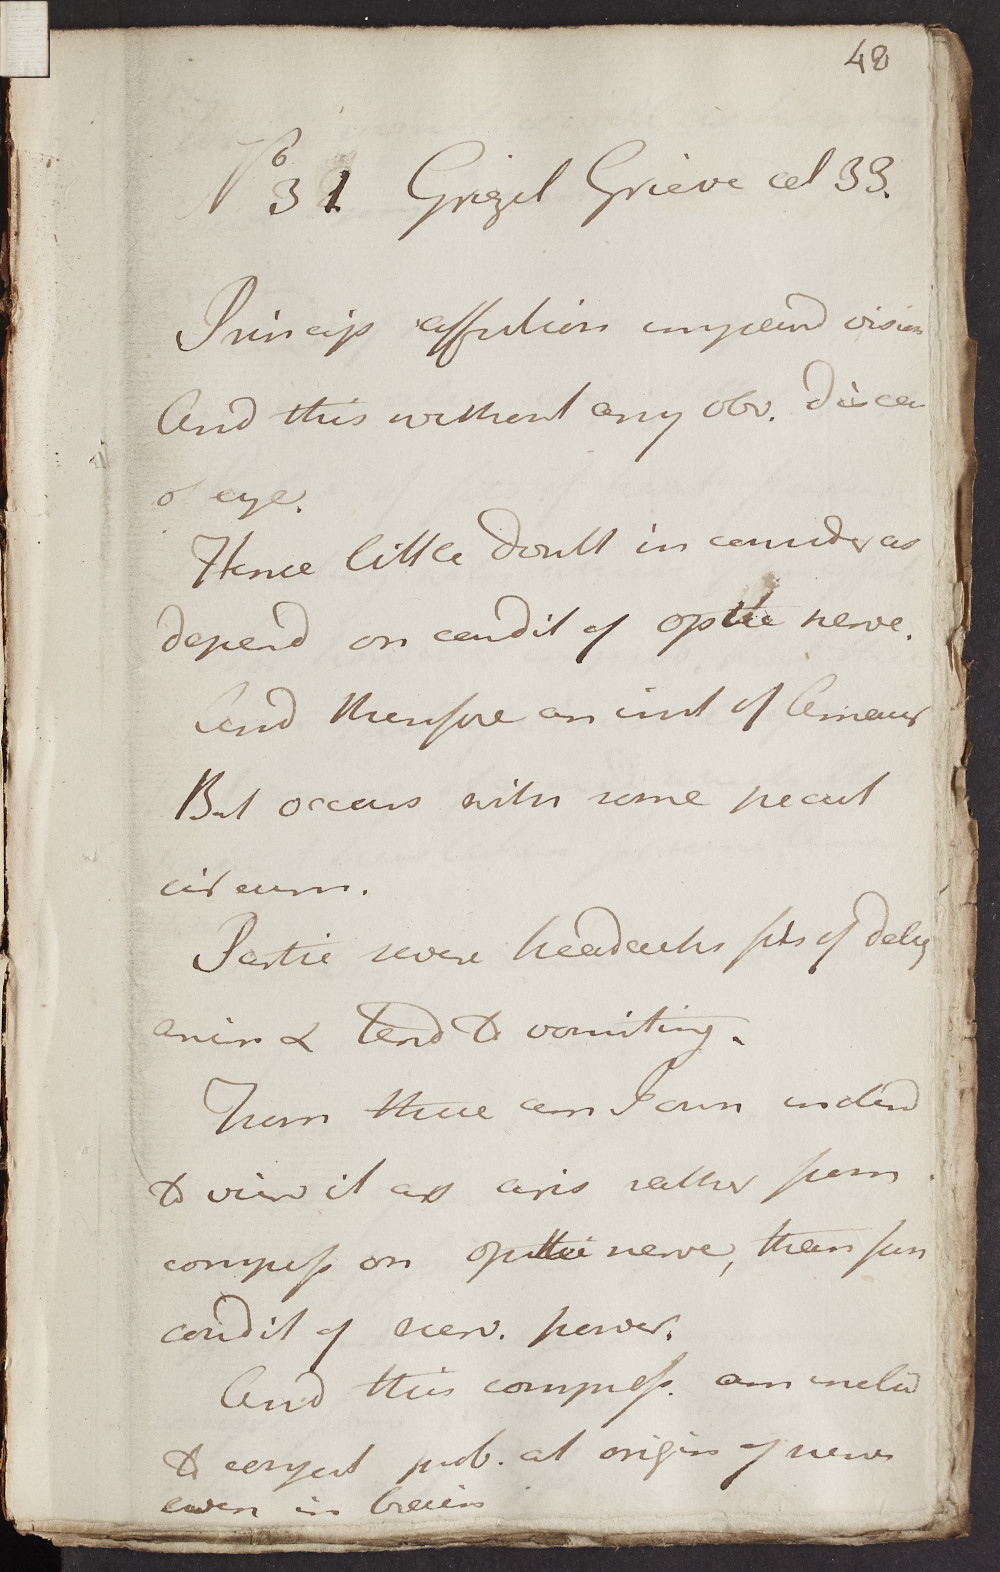 48
No 31 Grizel Grieve æt 33.
Princip affection impaird vision
And this without any obv. disea
of eye.
Hence little doubt in consider as
depend on condit of optic nerve.
And therefore an inst of Amaur
But occurs with some pecul
circum.
Partic severe headachs fits of deliq
anim & tend to vomiting.
From these am I own inclind
to view it as aris rather from
compress on optic nerve, than from
condit of nerv. power.
And this compress. am inclid
to conject prob. at origin of nerve
even in brain